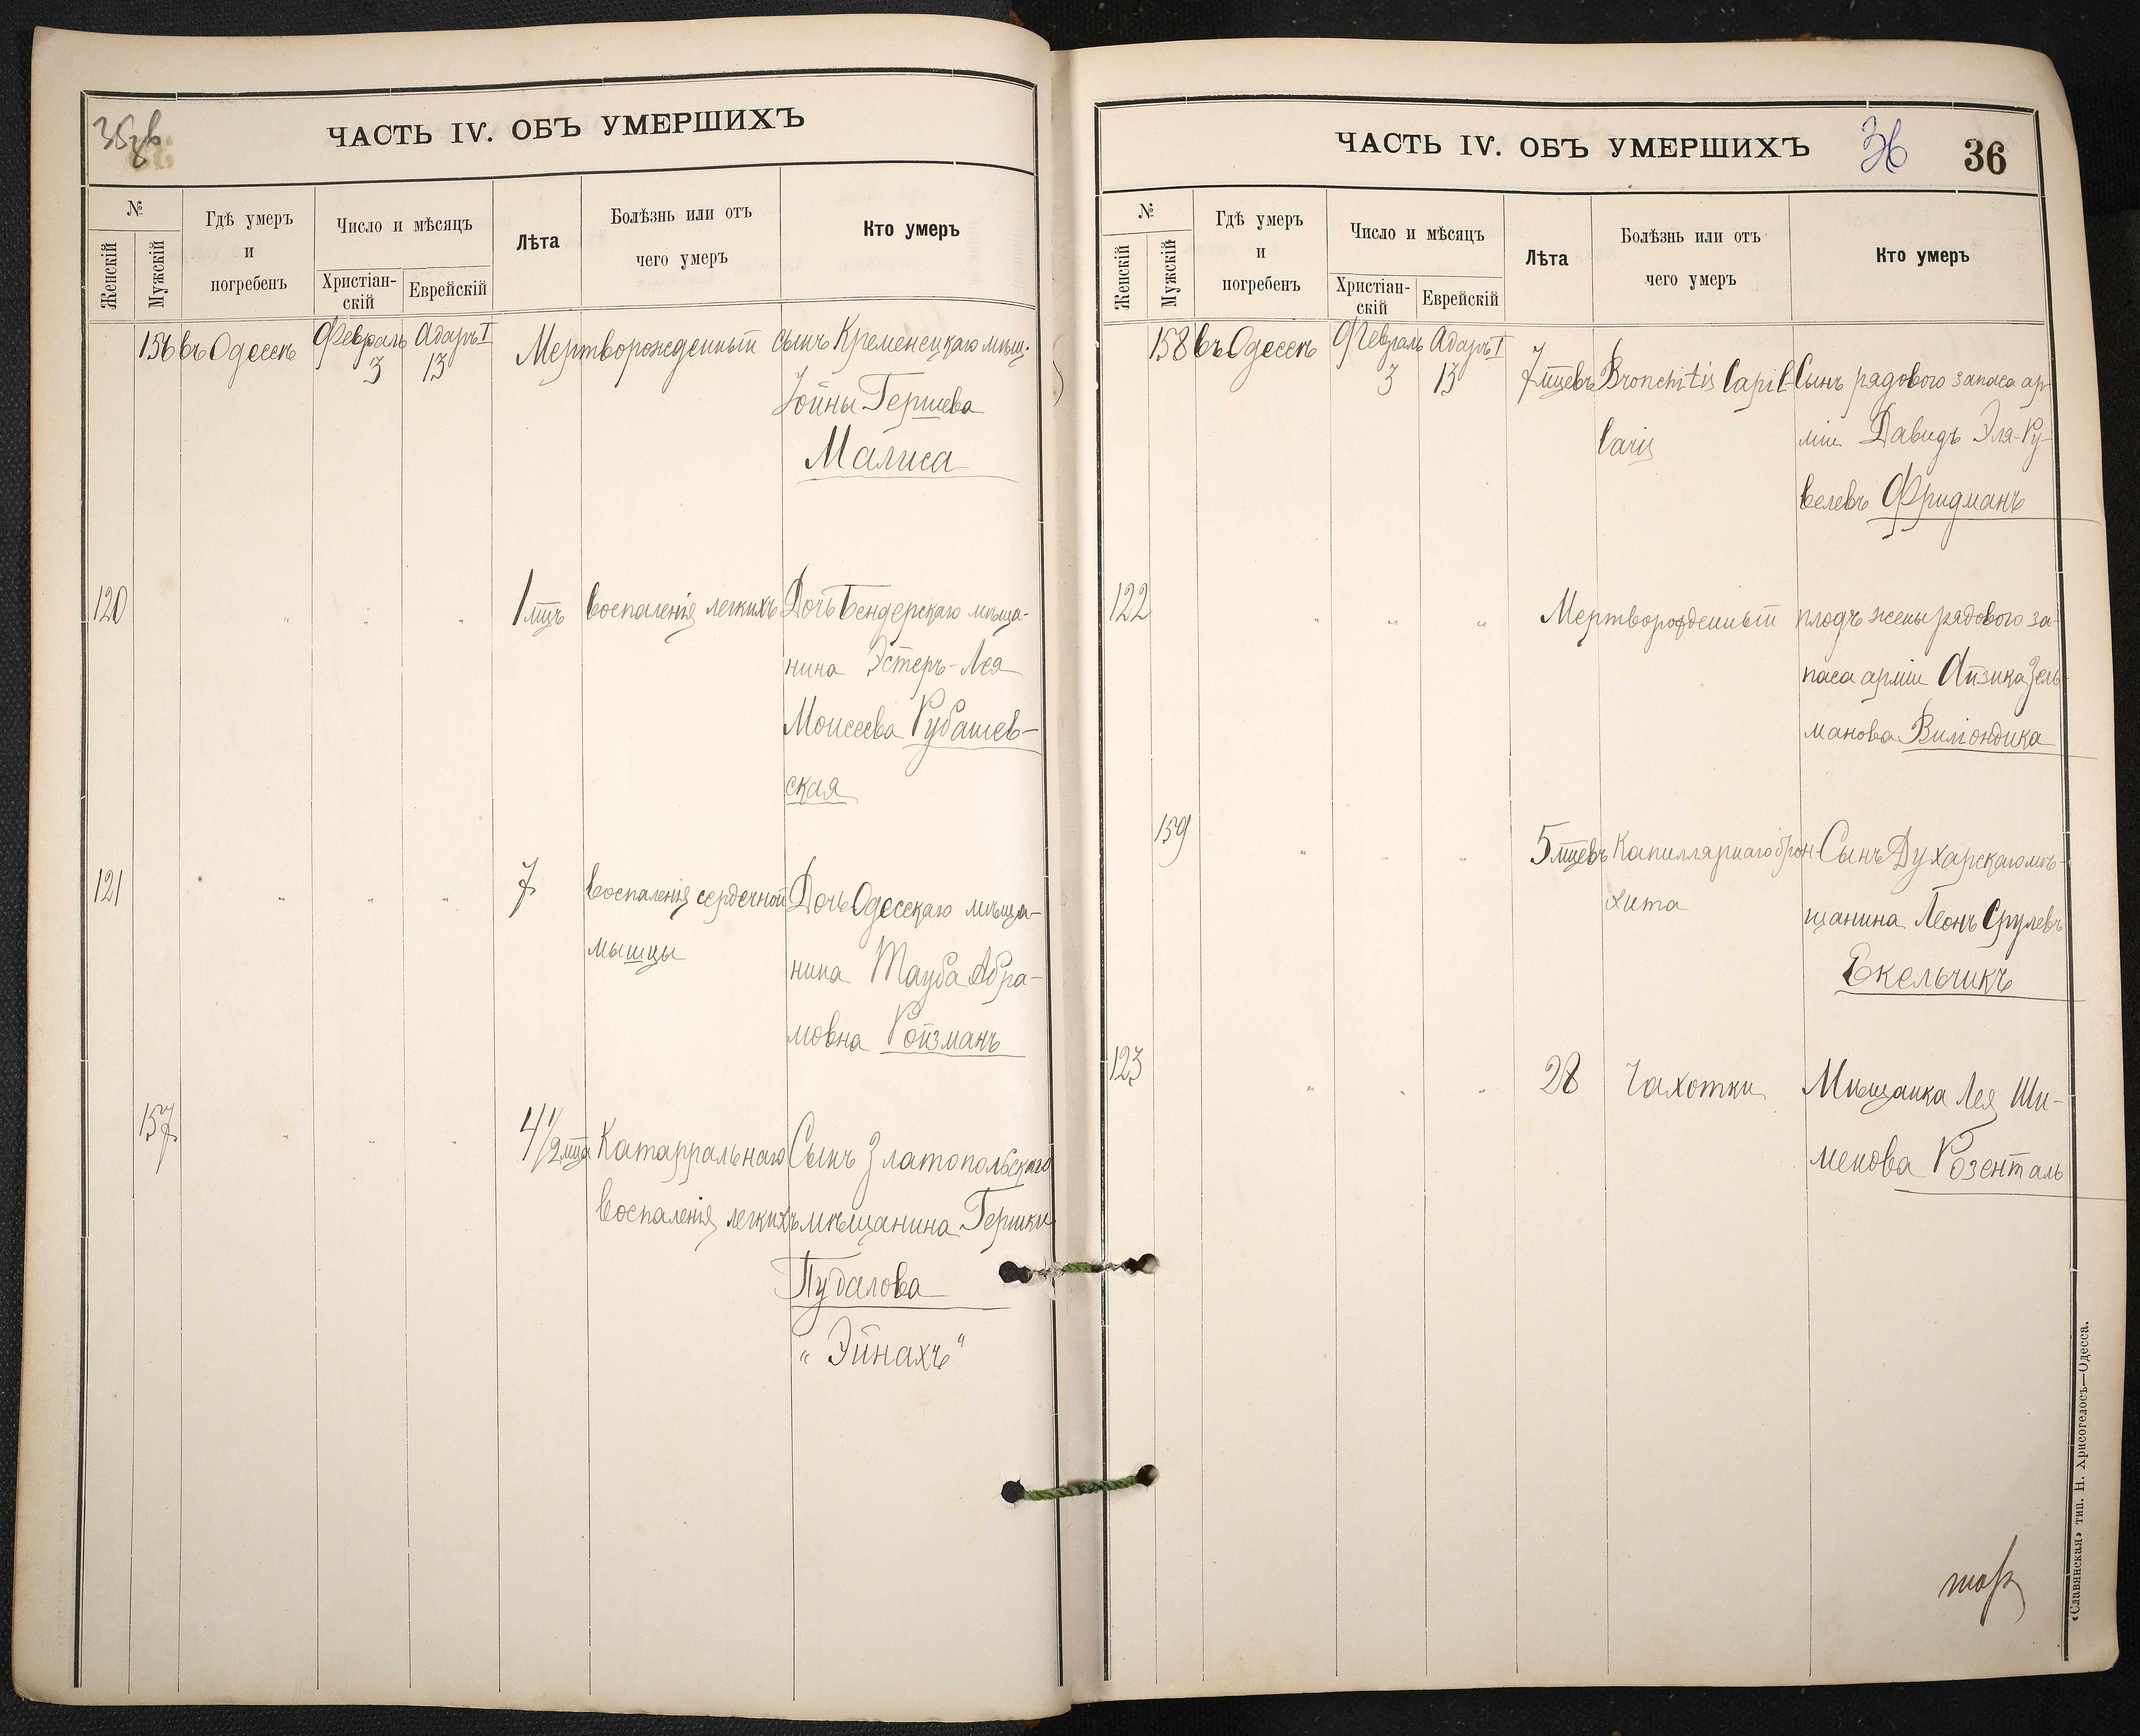 35об
ЧАСТЬ IV. ОБЪ УМЕРШИХЪ
№
Женскій
Мужскій
Гдѣ умеръ
и
погребенъ
Число и мѣсяцъ
Христіан-
скій
Еврейскій
Лѣта
Болѣзнь или отъ
чего умеръ
Кто умеръ
156 въ Одессѣ Февраль 3 Адаръ I 13 Мертворожденный сынъ Кременецкаго мѣщ.
Іойны Гершева
Малиса
120 " " " 1 мцъ воспаленія легкихъ Дочь Бендерскаго мѣща-
нина Эстеръ-Лея
Моисеева Рубашев-
ская
121 " " " 7 воспаленія сердечной Дочь Одесскаго мѣща-
мышцы нина Тауба Абра-
мовна Ройзманъ
157 " " " 4 1/2 мца Катарральнаго Сынъ Златопольскаго
воспаленія легкихъ мѣщанина Гершки
Пудалова
"Эйнахъ"
ЧАСТЬ IV. ОБЪ УМЕРШИХЪ 36 36
№
Женскій
Мужскій
Гдѣ умеръ
и
погребенъ
Число и мѣсяцъ
Христіан-
скій
Еврейскій
Лѣта
Болѣзнь или отъ
чего умеръ
Кто умеръ
158 въ Одессѣ Февраль 3 Адаръ I 13 7 мцевъ Bronchitis Capil- Сынъ рядового запаса ар-
laris міи Давидъ Эля-Ру-
велевъ Фридманъ
122 " " " Мертворожденный плодъ жены рядового за-
паса арміи Айзика Зель-
манова
159 " " " 5 мцевъ Капиллярнаго брон- Сынъ Духарскаго мѣ-
хита щанина Леонъ Срулевъ
Екельчикъ
123 " " " 28 Чахотки Мѣщанка Лея Ши-
менова Розенталь
«Славянская» тип. Н. Хрисогелосъ—Одесса.